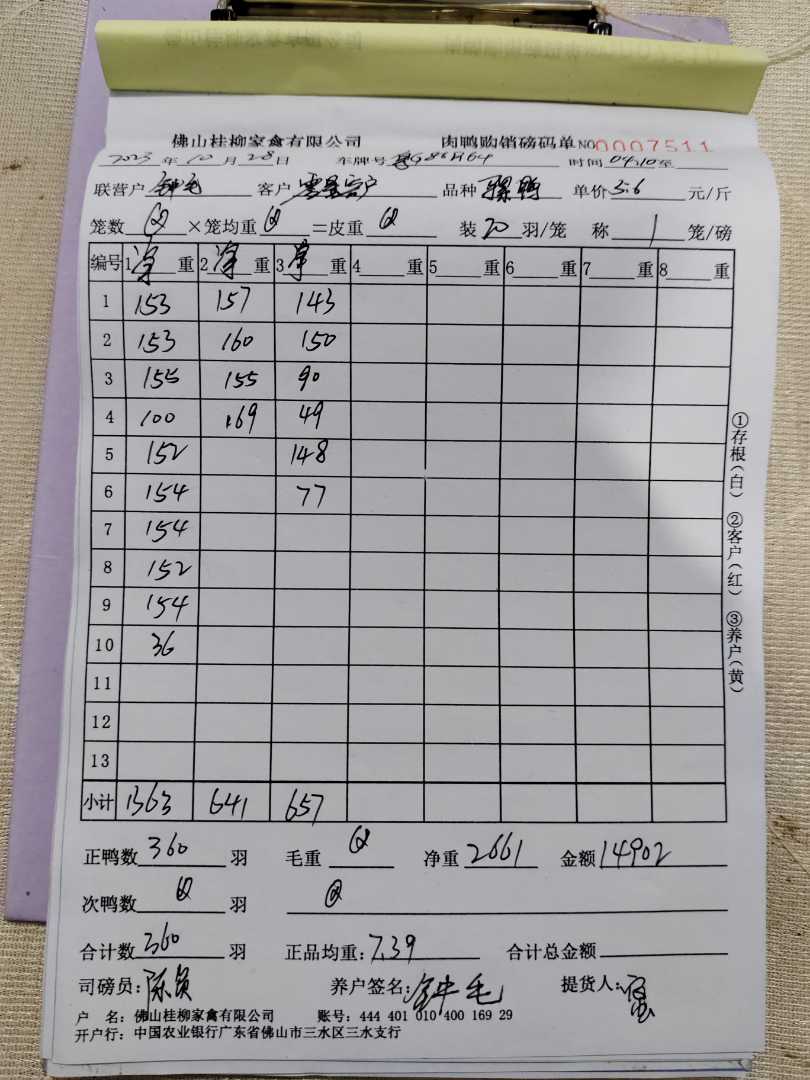 佛山桂柳家禽有限公司 肉鸭购销磅码单 NO 0007511
2023年10月28日 车牌号 时间 04:10至
联营户 钟毛 客户 零星客户 品种 骡鸭 单价 5.6 元/斤
笼数 ×笼均重 =皮重 装 20 羽/笼 称 1 笼/磅
编号 1 净 重 2 净 重 3 净 重 4 重 5 重 6 重 7 重 8 重
1 153 157 143
2 153 160 150
3 155 155 90
4 100 169 49
5 152 148
6 154 77
7 154
8 152
9 154
10 36
11
12
13
小计 1363 641 657
①存根(白) ②客户(红) ③养户(黄)
正鸭数 360 羽 毛重 净重 2661 金额 14902
次鸭数 羽
合计数 360 羽 正品均重: 7.39 合计总金额
司磅员: 陈 养户签名: 钟毛 提货人:
户 名: 佛山桂柳家禽有限公司 账号: 444 401 010 400 169 29
开户行: 中国农业银行广东省佛山市三水区三水支行